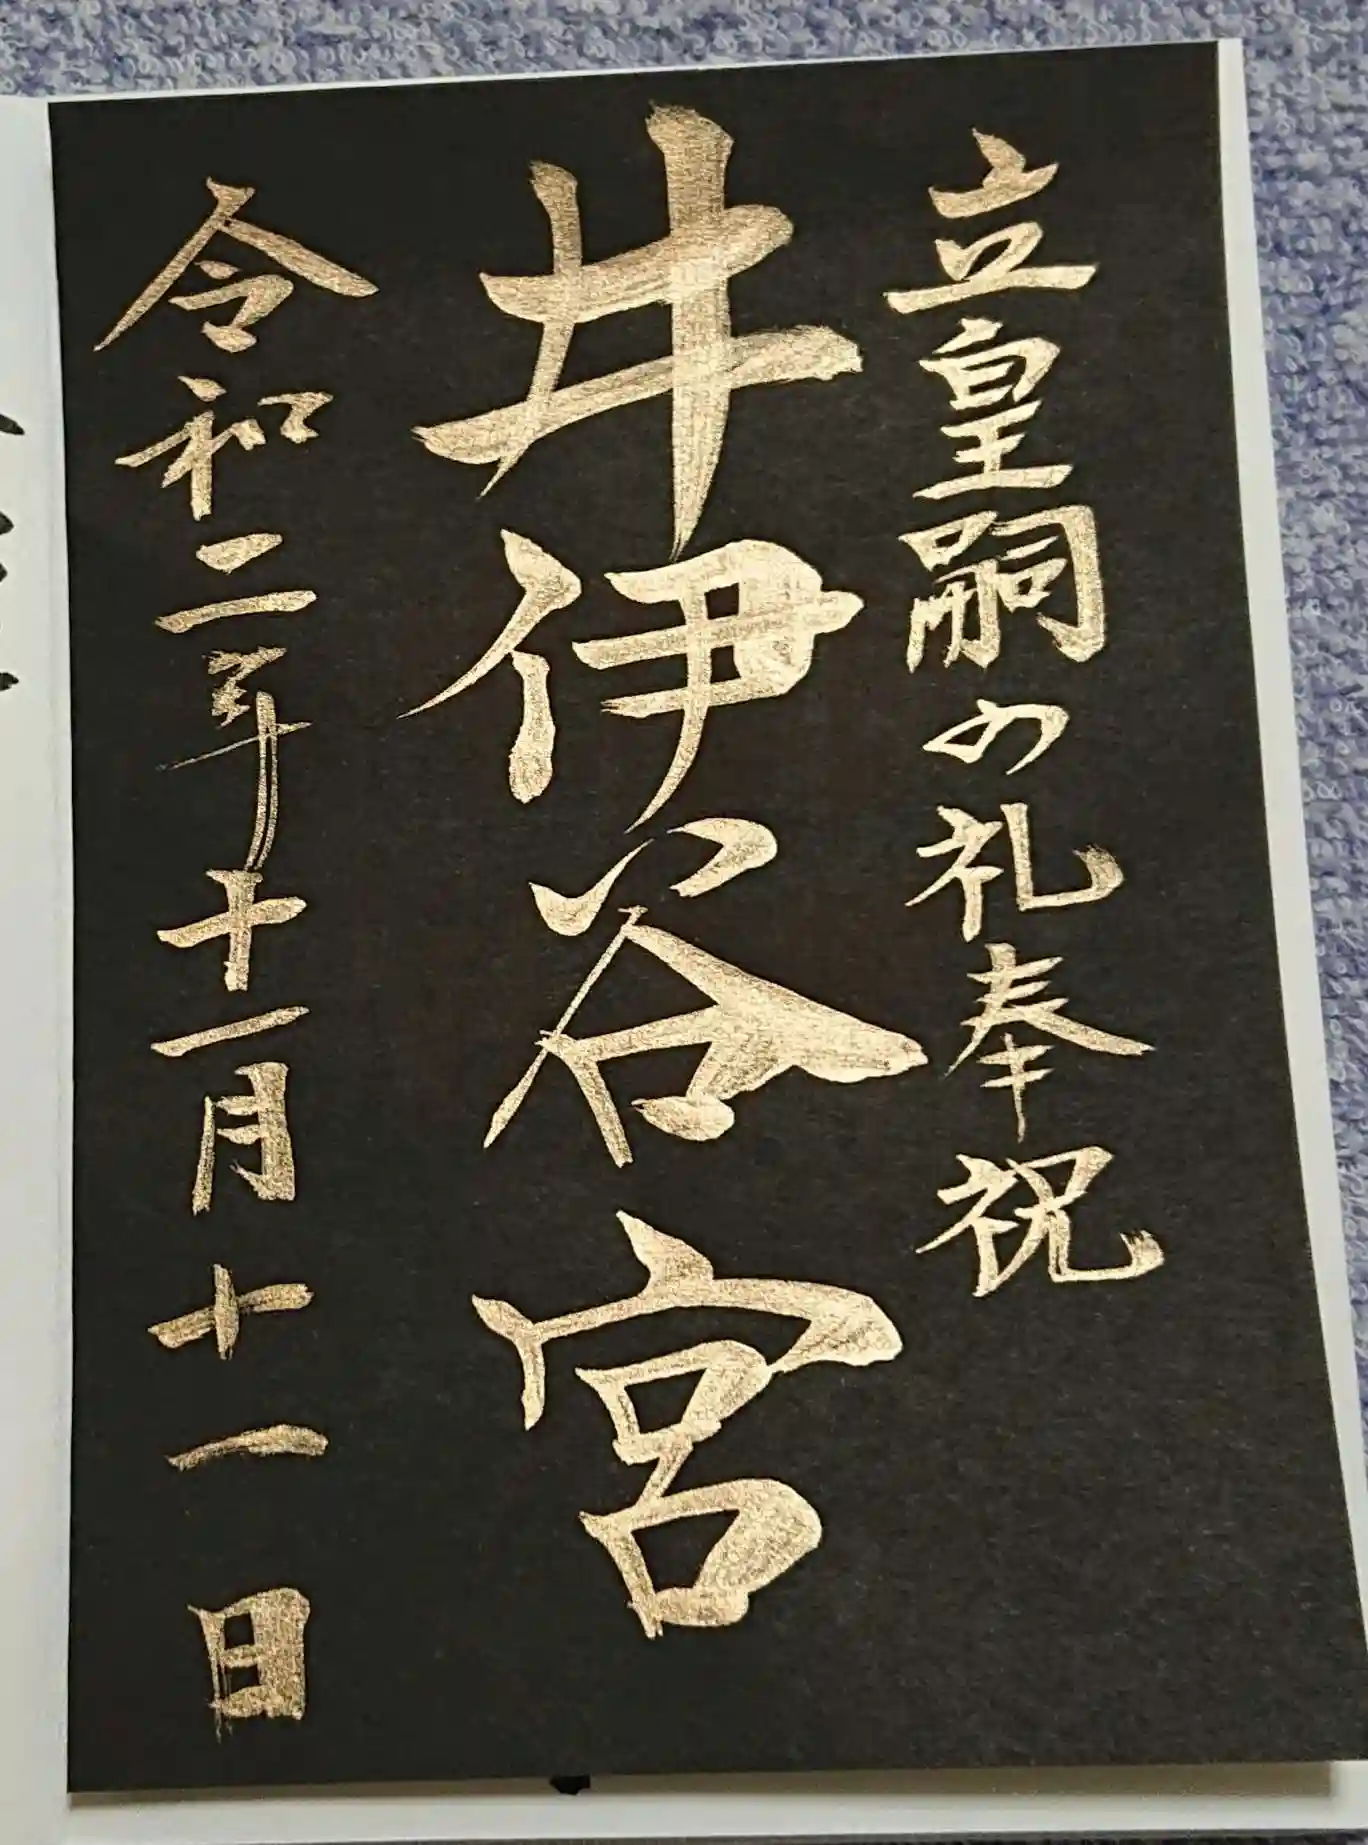 立皇嗣の礼奉祝
井伊谷宮
令和二年十一月十一日